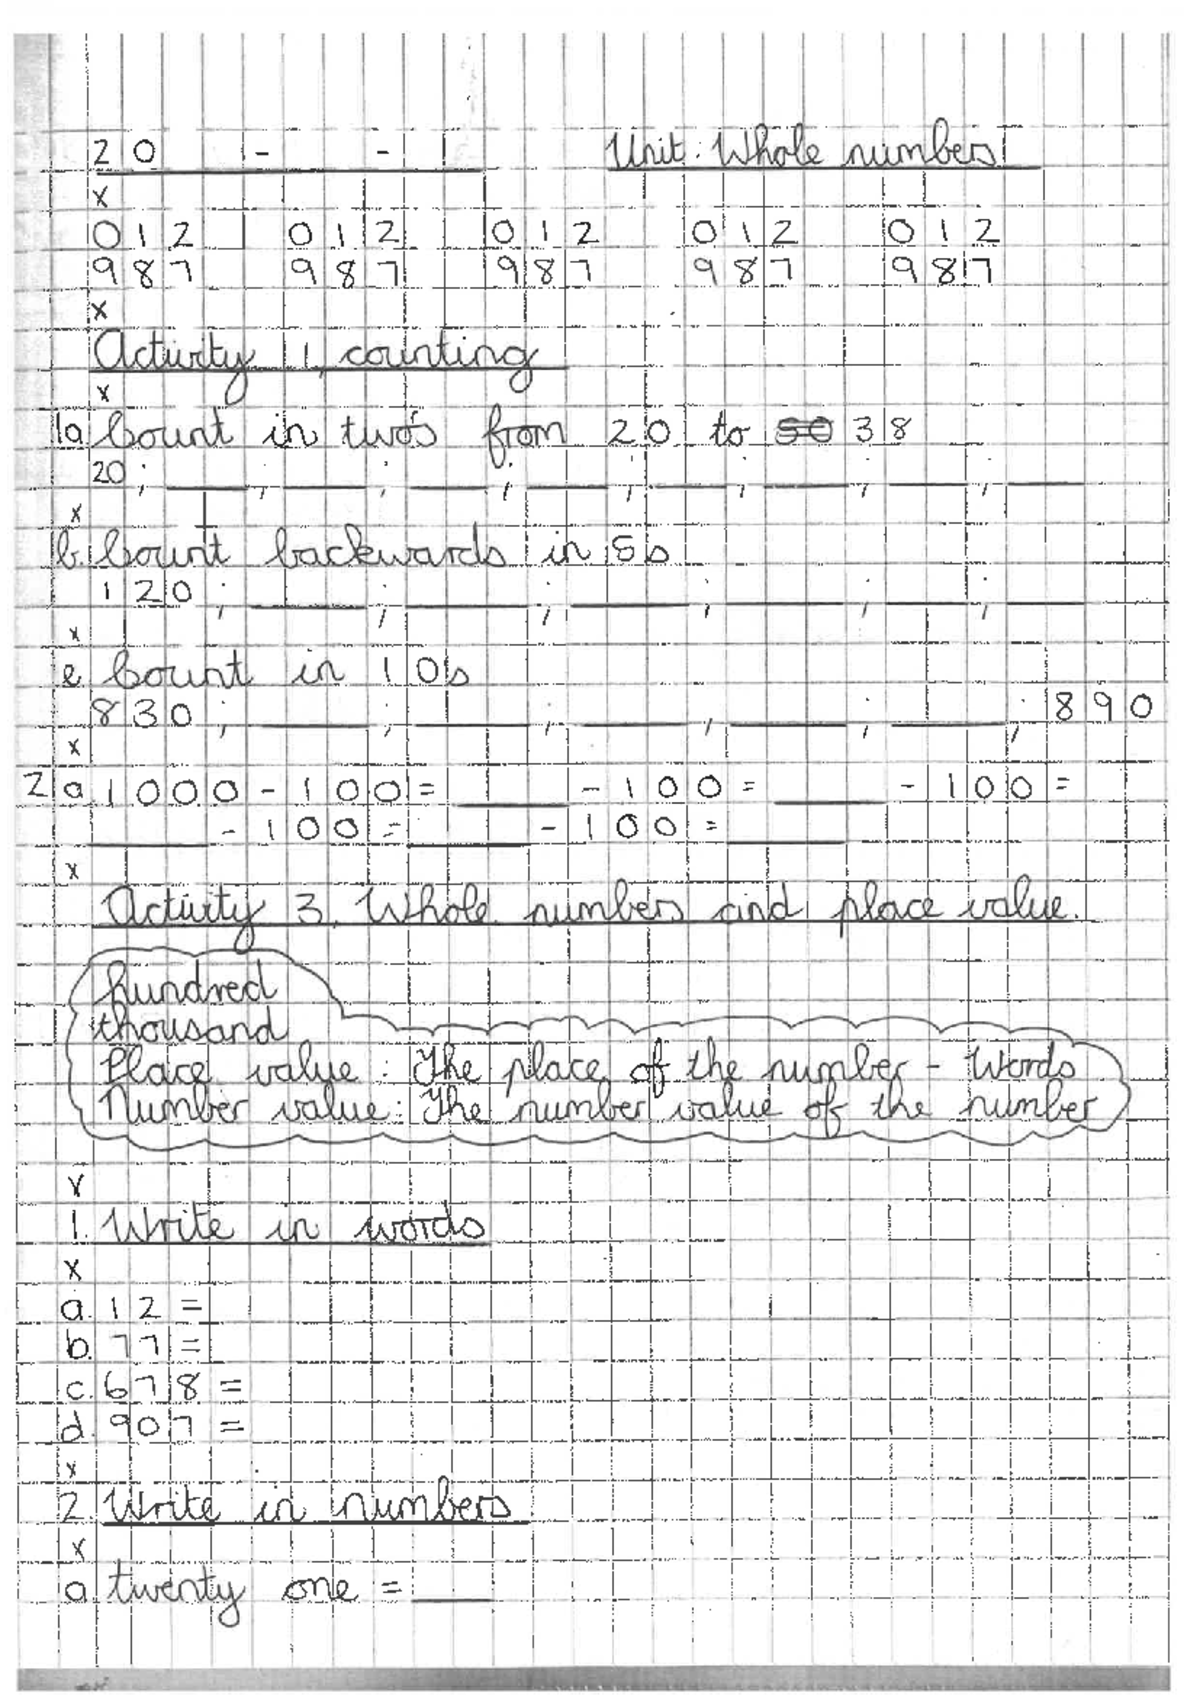 20 - - Unit: Whole numbers
x
012 012 012 012 012
987 987 987 987 987
x
Activity 1, counting
x
1a Count in two's from 20 to 50 38
20 ; ____ ; ____ ; ____ ; ____ ; ____ ; ____ ; ____ ; ____
x
b. Count backwards in 5s
120 ; ____ ; ____ ; ____ ; ____ ; ____ ; ____
x
e Count in 10s
830 ; ____ ; ____ ; ____ ; ____ ; ____ ; 890
x
2a 1000 - 100 = ____ - 100 = ____ - 100 =
____ - 100 = ____ - 100 = ____
x
Activity 3. Whole numbers and place value.
hundred
thousand
Place value: The place of the number - Words
Number value: The number value of the number
x
1. Write in words
x
a. 12 =
b. 77 =
c. 678 =
d. 907 =
x
2. Write in numbers
x
a. twenty one = ____